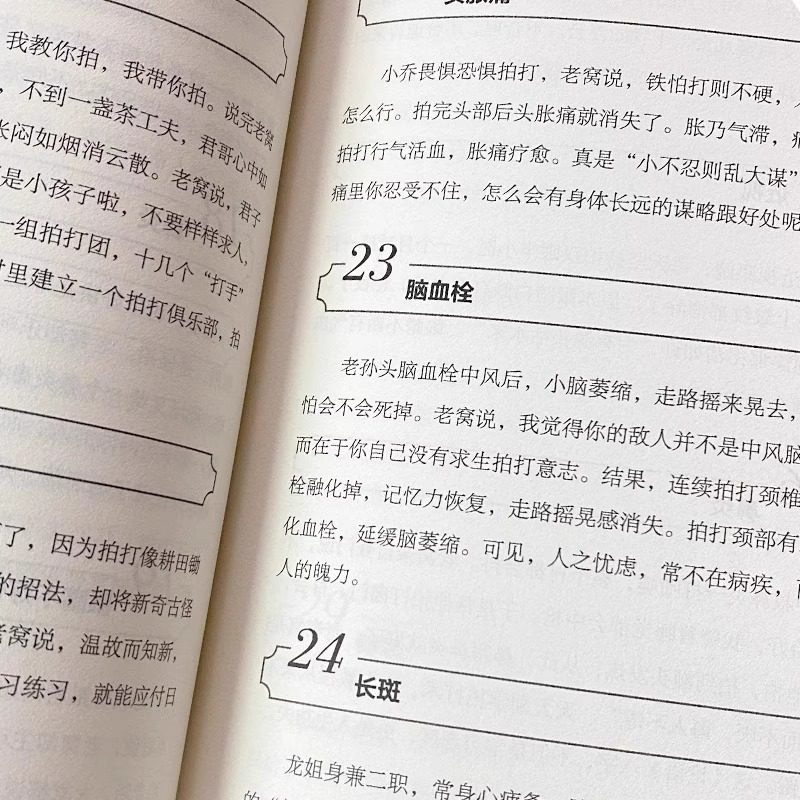 我教你拍，我带你拍。说完老窝
，不到一盏茶工夫，君哥心中如
胀闷如烟消云散。老窝说，君子
是小孩子啦，不要样样求人，
一组拍打团，十几个“打手”
村里建立一个拍打俱乐部，拍
了，因为拍打像耕田锄
的招法，却将新奇古怪
老窝说，温故而知新，
习练习，就能应付日
胀痛
小乔畏惧恐惧拍打，老窝说，铁怕打则不硬，
怎么行。拍完头部后头胀痛就消失了。胀乃气滞，
拍打行气活血，胀痛疗愈。真是“小不忍则乱大谋”
痛里你忍受不住，怎么会有身体长远的谋略跟好处呢
23
脑血栓
老孙头脑血栓中风后，小脑萎缩，走路摇来晃去，
怕会不会死掉。老窝说，我觉得你的敌人并不是中风脑
而在于你自己没有求生拍打意志。结果，连续拍打颈椎
栓融化掉，记忆力恢复，走路摇晃感消失。拍打颈部有
化血栓，延缓脑萎缩。可见，人之忧虑，常不在病疾，
人的魄力。
24
长斑
龙姐身兼二职，常身心疲惫，
的“